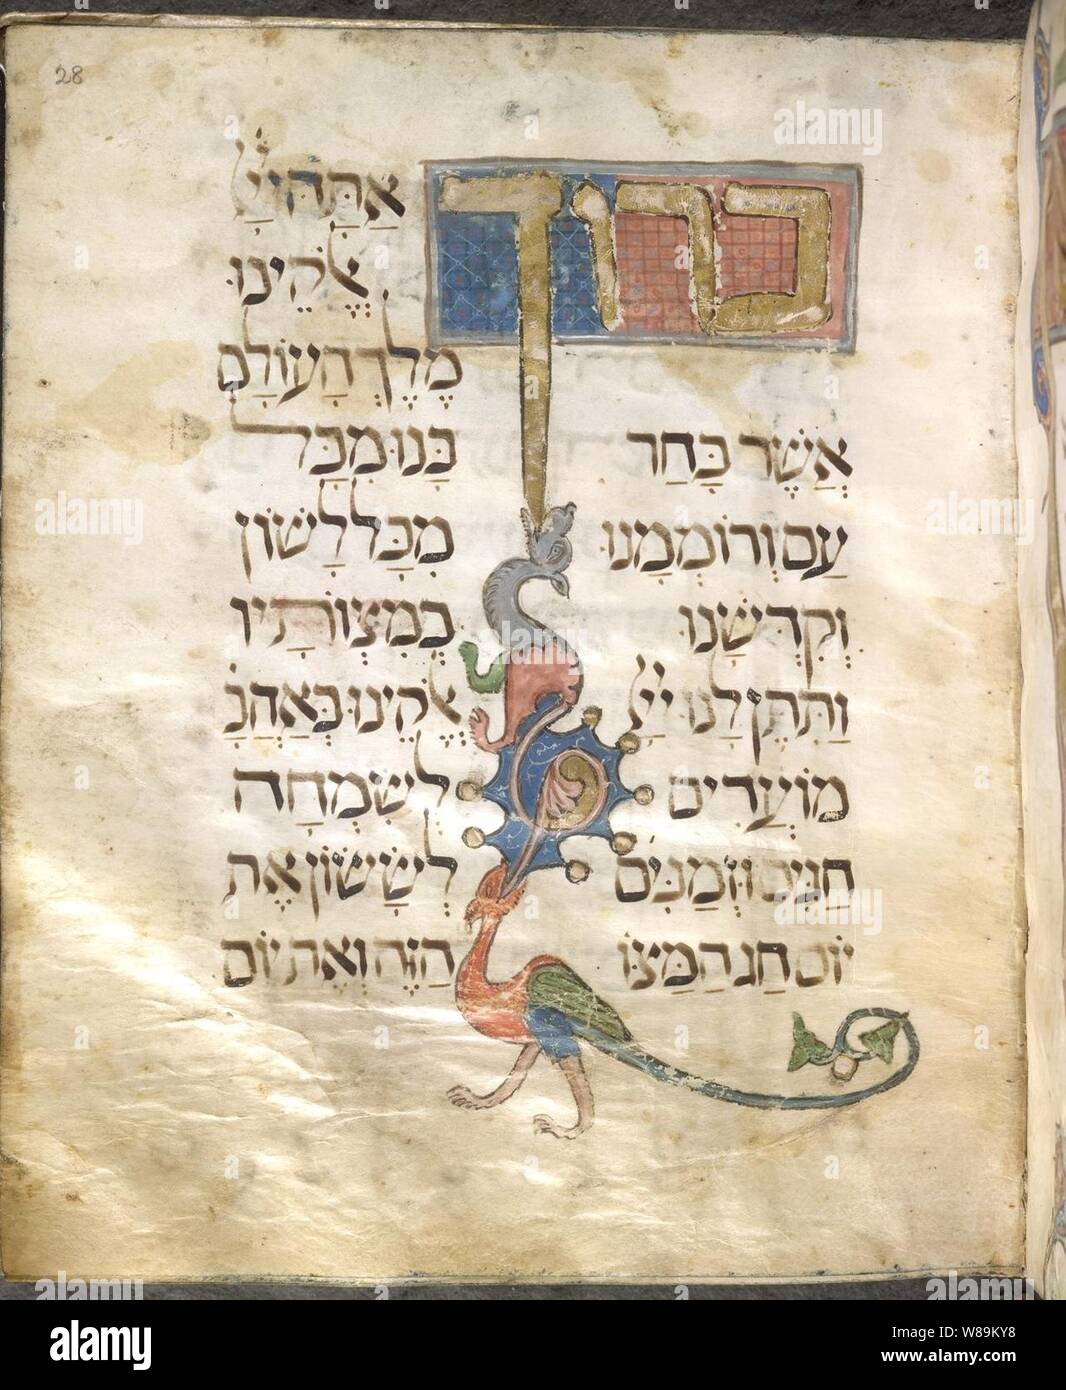 28
בָּרוּךְ אַתָּה יְיָ
אֱלֹקֵינוּ
מֶלֶךְ הָעוֹלָם
אֲשֶׁר בָּחַר בָּנוּ מִכָּל
עַם וְרוֹמְמָנוּ מִכָּל לָשׁוֹן
וְקִדְּשָׁנוּ בְּמִצְוֹתָיו
וַתִּתֶּן לָנוּ יְיָ אֱלֹקֵינוּ בְּאַהֲבָ
מוֹעֲדִים לְשִׂמְחָה
חַגִּים וּזְמַנִּים לְשָׂשׂוֹן אֶת
יוֹם חַג הַמַּצּוֹ הַזֶּה וְאֶת יוֹם
alamy
Image ID: W89KY8
www.alamy.com